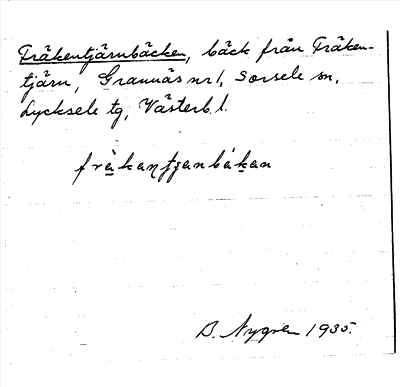 Fräkentjärnbäcken, bäck från Fräken-
tjärn, Grannäs nr 1, Sorsele sn,
Lycksele tg, Västerb. l.
fräkantjanbäkan
B. Nygren 1935.